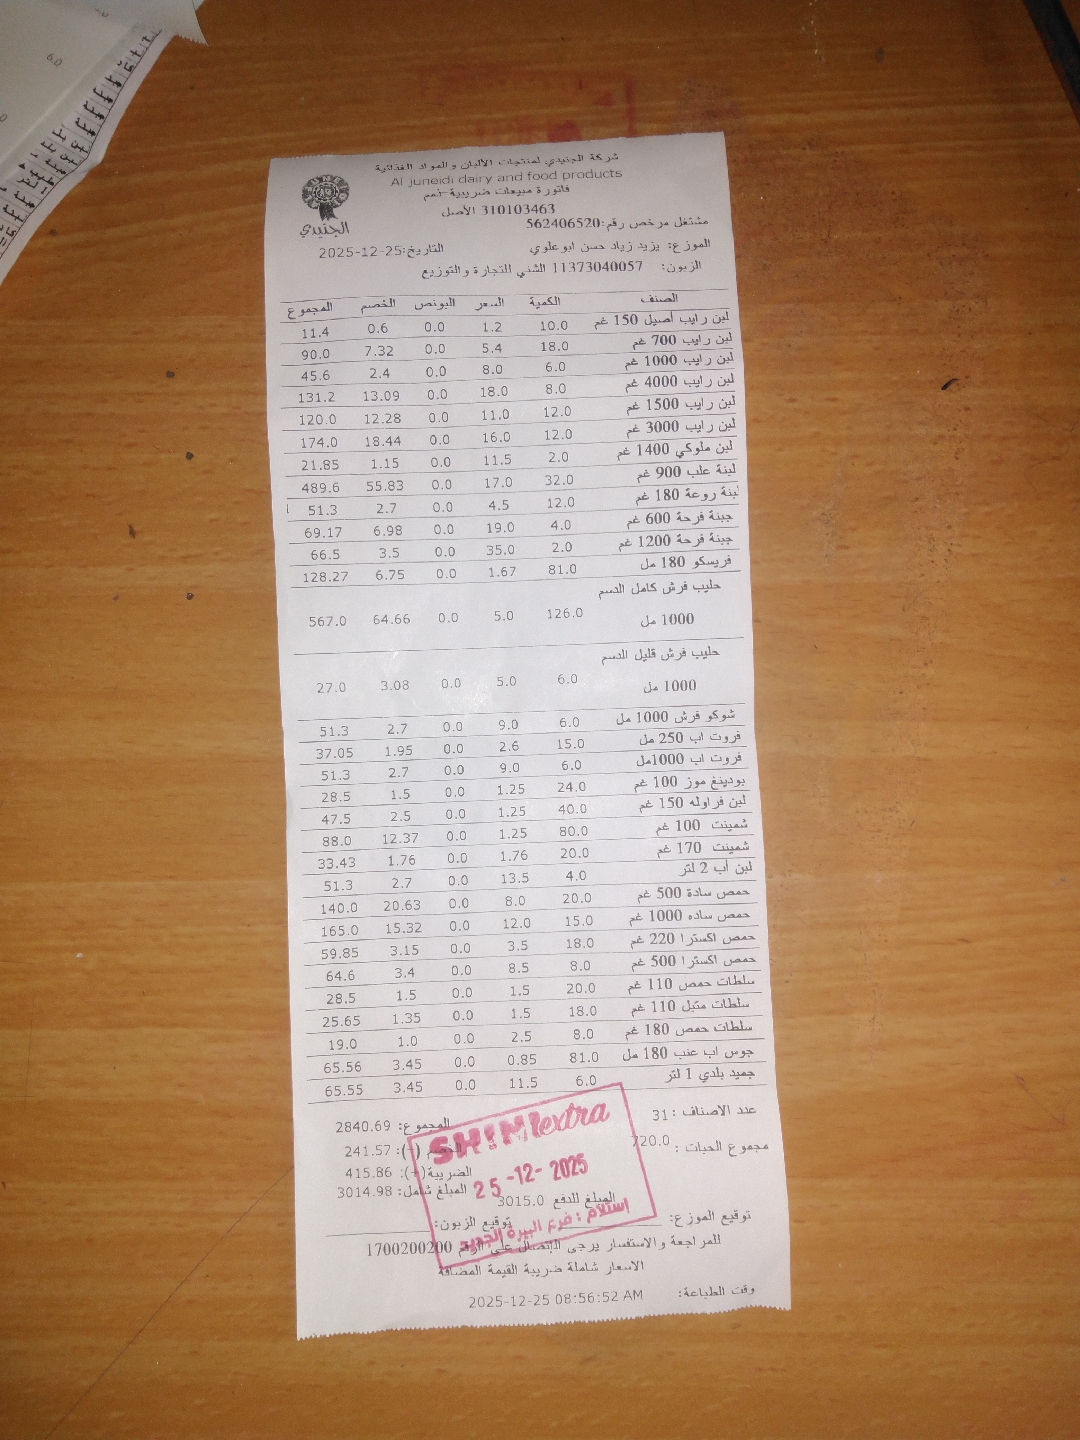 شركة الجنيدي لمنتجات الألبان والمواد الغذائية
Al juneidi dairy and food products
فاتورة مبيعات ضريبية-ذمم
310103463 الأصل
الجنيدي
مشتغل مرخص رقم:562406520
الموزع: يزيد زياد حسن ابو علوي التاريخ:2025-12-25
الزبون: 11373040057 الشني للتجارة والتوزيع
الصنف الكمية السعر البونص الخصم المجموع
لبن رايب أصيل 150 غم 10.0 1.2 0.0 0.6 11.4
لبن رايب 700 غم 18.0 5.4 0.0 7.32 90.0
لبن رايب 1000 غم 6.0 8.0 0.0 2.4 45.6
لبن رايب 4000 غم 8.0 18.0 0.0 13.09 131.2
لبن رايب 1500 غم 12.0 11.0 0.0 12.28 120.0
لبن رايب 3000 غم 12.0 16.0 0.0 18.44 174.0
لبن ملوكي 1400 غم 2.0 11.5 0.0 1.15 21.85
لبنة علب 900 غم 32.0 17.0 0.0 55.83 489.6
لبنة روعة 180 غم 12.0 4.5 0.0 2.7 51.3
جبنة فرحة 600 غم 4.0 19.0 0.0 6.98 69.17
جبنة فرحة 1200 غم 2.0 35.0 0.0 3.5 66.5
فريسكو 180 مل 81.0 1.67 0.0 6.75 128.27
حليب فرش كامل الدسم
1000 مل 126.0 5.0 0.0 64.66 567.0
حليب فرش قليل الدسم
1000 مل 6.0 5.0 0.0 3.08 27.0
شوكو فرش 1000 مل 6.0 9.0 0.0 2.7 51.3
فروت اب 250 مل 15.0 2.6 0.0 1.95 37.05
فروت اب 1000مل 6.0 9.0 0.0 2.7 51.3
بودينغ موز 100 غم 24.0 1.25 0.0 1.5 28.5
لبن فراوله 150 غم 40.0 1.25 0.0 2.5 47.5
شمينت 100 غم 80.0 1.25 0.0 12.37 88.0
شمينت 170 غم 20.0 1.76 0.0 1.76 33.43
لبن اب 2 لتر 4.0 13.5 0.0 2.7 51.3
حمص سادة 500 غم 20.0 8.0 0.0 20.63 140.0
حمص ساده 1000 غم 15.0 12.0 0.0 15.32 165.0
حمص اكسترا 220 غم 18.0 3.5 0.0 3.15 59.85
حمص اكسترا 500 غم 8.0 8.5 0.0 3.4 64.6
سلطات حمص 110 غم 20.0 1.5 0.0 1.5 28.5
سلطات متبل 110 غم 18.0 1.5 0.0 1.35 25.65
سلطات حمص 180 غم 8.0 2.5 0.0 1.0 19.0
جوس اب عنب 180 مل 81.0 0.85 0.0 3.45 65.56
جميد بلدي 1 لتر 6.0 11.5 0.0 3.45 65.55
عدد الاصناف : 31 المجموع: 2840.69
مجموع الحبات : 720.0 الخصم (-): 241.57
الضريبة(+): 415.86
المبلغ شامل: 3014.98
المبلغ للدفع 3015.0
SHINI extra
25-12-2025
استلام : فرع البيرة الجديد
توقيع الموزع: توقيع الزبون:
للمراجعة والاستفسار يرجى الإتصال على الرقم 1700200200
الاسعار شاملة ضريبة القيمة المضافة
وقت الطباعة: 2025-12-25 08:56:52 AM